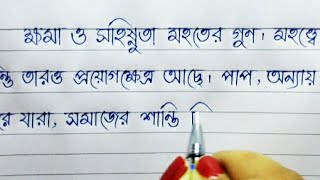 ক্ষমা ও সহিষ্ণুতা মহতের গুন। মহত্বে
তারও প্রয়োগক্ষেত্র আছে। পাপ, অন্যায়
যারা, সমাজের শান্তি